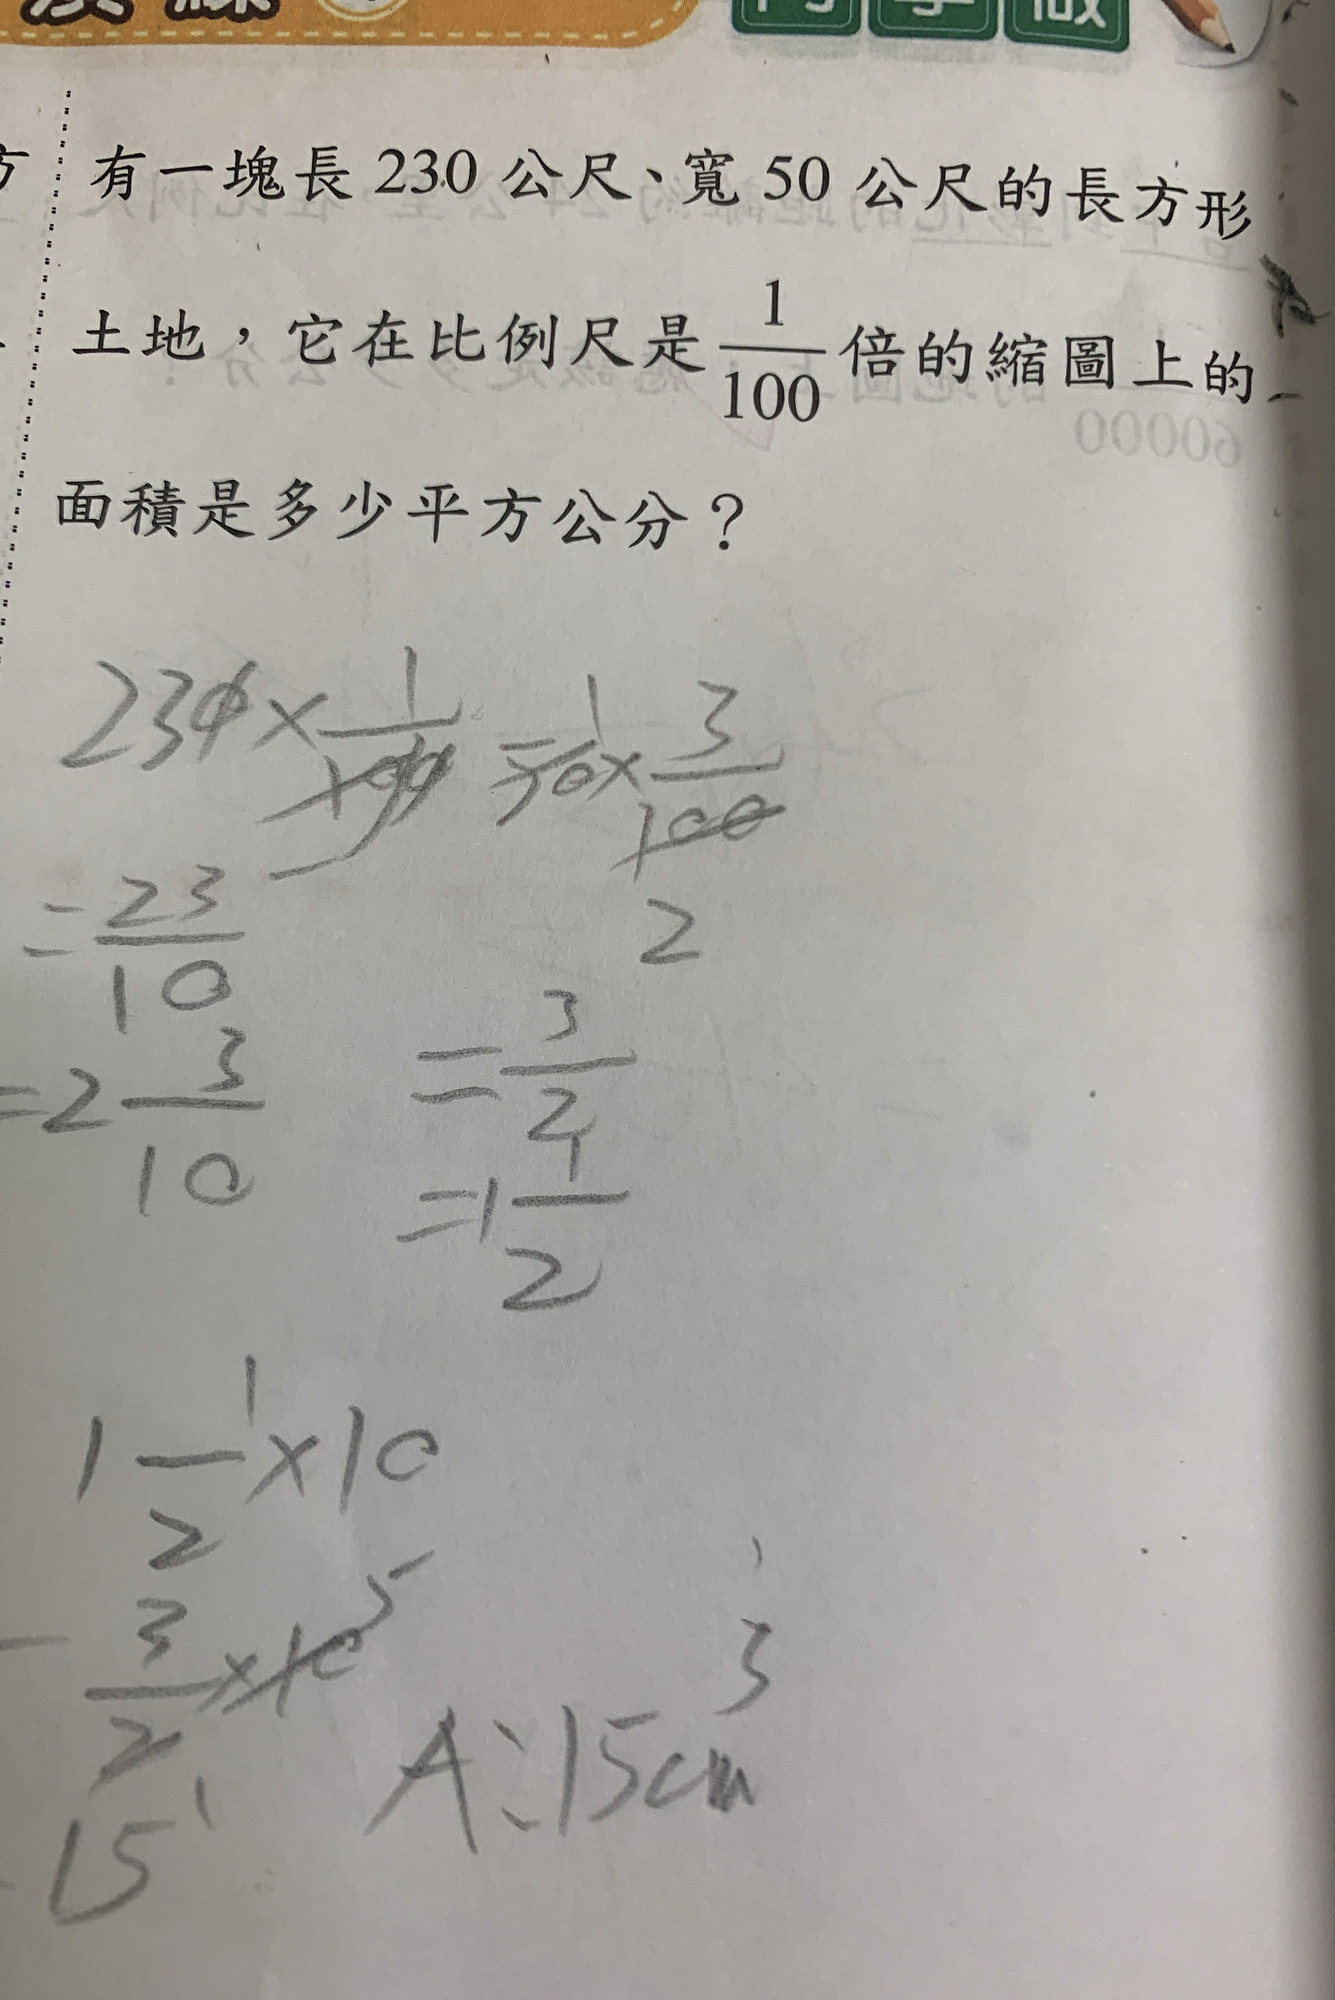 方
有一塊長230公尺、寬50公尺的長方形
土地，它在比例尺是1/100倍的縮圖上的
面積是多少平方公分？
230×1/100 50×3/100
1
2
=23/10
=2 3/10 =3/2
=1 1/2
1 1/2×10
3/2×10 5
1
15 A:15cm³